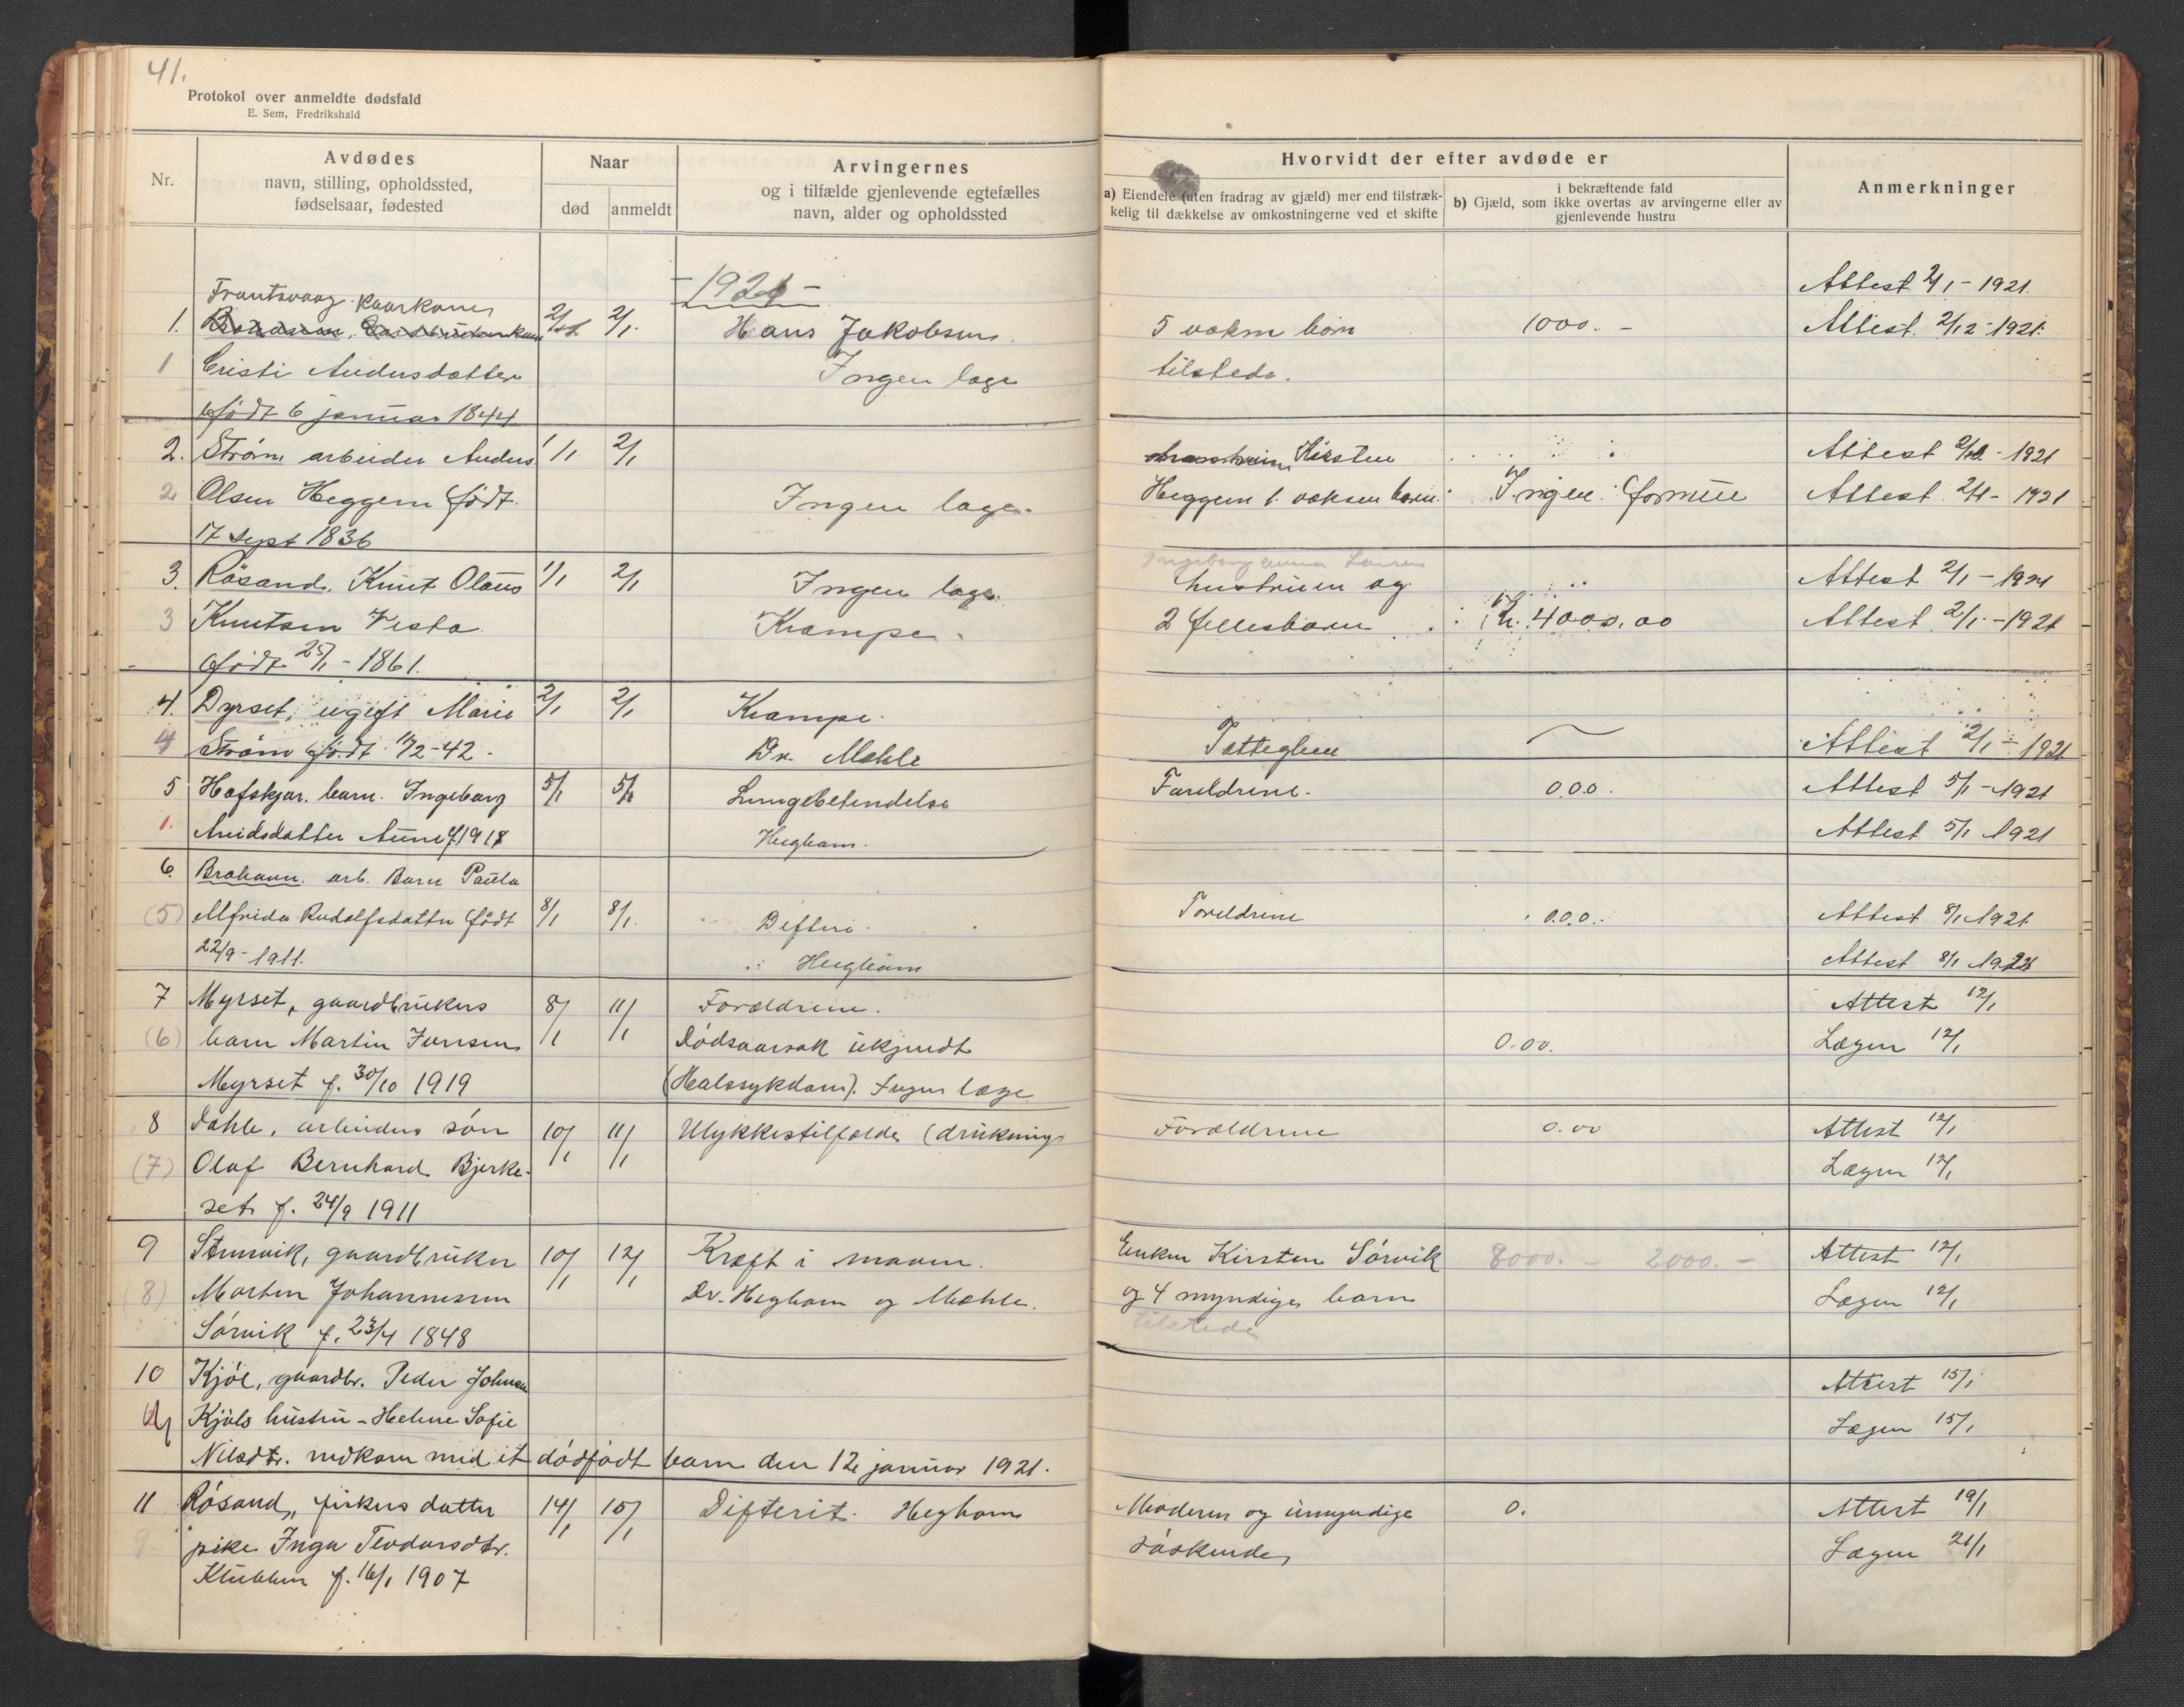 41.
Protokol over anmeldte dødsfald
E. Sem, Fredrikshald
Nr.
Avdødes
navn, stilling, opholdssted,
fødselsaar, fødested
Naar
død
anmeldt
Arvingernes
og i tilfælde gjenlevende egtefælles
navn, alder og opholdssted
Hvorvidt der efter avdøde er
a) Eiendele (uten fradrag av gjæld) mer end tilstræk-
kelig til dækkelse av omkostningerne ved et skifte
i bekræftende fald
b) Gjæld, som ikke overtas av arvingerne eller av
gjenlevende hustru
Anmerkninger
-1921-
Attest 2/1 - 1921.
Frantsvaag kaarkone
1. 2/1 Hans Jakobsen. 5 voksne børn 1000. - Attest. 2/12 - 1921.
1 Cristi Andersdatter Ingen læge tilstede.
født 6 januar 1844.
2. Strøm arbeider Anders 1/1 2/1 Kirsten Attest - 1921
2 Olsen Heggem født Ingen læge. Heggem 1. voksen barn. Ingen formue Attest 2/1 - 1921
17 Sept 1836
3. Røsand. Knut Olaus 1/1 2/1 Ingen læge. hustruen og Attest 2/1 - 1921
3 Knutsen Vesta Krampe. 2 fellesbarn Kr. 4000,00 Attest 2/1 - 1921
født 25/1 - 1861.
4. Dyrset, ugift Marie 2/1 2/1 Krampe.
4 Strøm født 11/2-42. Dr. Mæhle Fattiglem Attest 2/1 - 1921
5 Hafskjær. barn. Ingeborg 5/1 5/1 Lungebetendelse Foreldrene. 0.00. Attest 5/1 - 1921
1. Arvidsdatter Aune f 1918 Hegham. Attest 5/1 1921
6. Brahaun. arb. Barn Paula
(5) Alfrida Rudolfsdatter født 8/1 8/1. Difteri. Foreldrene 0.00. Attest 8/1 1921
22/9 - 1911. Hegham Attest 8/1 1921
7 Myrset, gaardbrukers 8/1 11/1 Forældrene. Attest 12/1
(6) barn Martin Jensen Dødsaarsak ukjendt 0.00. Lægen 12/1
Myrset f. 30/10 1919 (Halssykdom). Ingen læge
8 Dahle, arbeiders søn 10/1 11/1 Ulykkestilfælde (drukning) Forældrene 0.00 Attest 12/1
(7) Olaf Bernhard Bjerke- Lægen 12/1
set f. 24/9 1911
9 Stensvik, gaardbruker 10/1 12/1 Kræft i maven. Enken Kirsten Sørvik 8000. - 2000. - Attest 12/1
(8) Morten Johannessen Dr. Hegham og Mæhle. og 4 myndige barn Lægen 12/1
Sørvik f. 23/4 1848 tilstede
10 Kjøl, gaardbr. Peder Johnsen Attest 15/1
Kjøls hustru - Helene Sofie Lægen 15/1
Nilsdtr. nedkom med et dødfødt barn den 12 januar 1921.
11 Røsand, fiskers datter 14/1 15/1 Difterit. Hegham Moderen og umyndige 0. Attest 19/1
9 pike Inga Teodorsdtr. søskende Lægen 21/1
Klubben f. 16/1 1907